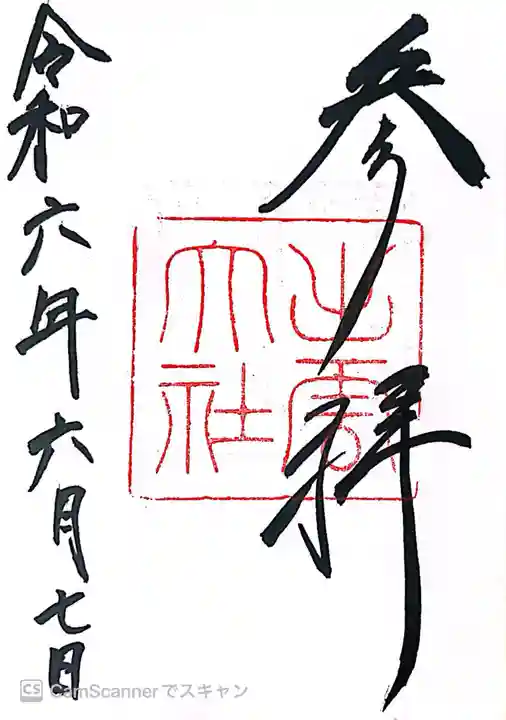 参拝
出雲大社
令和六年六月七日
CS CamScannerでスキャン